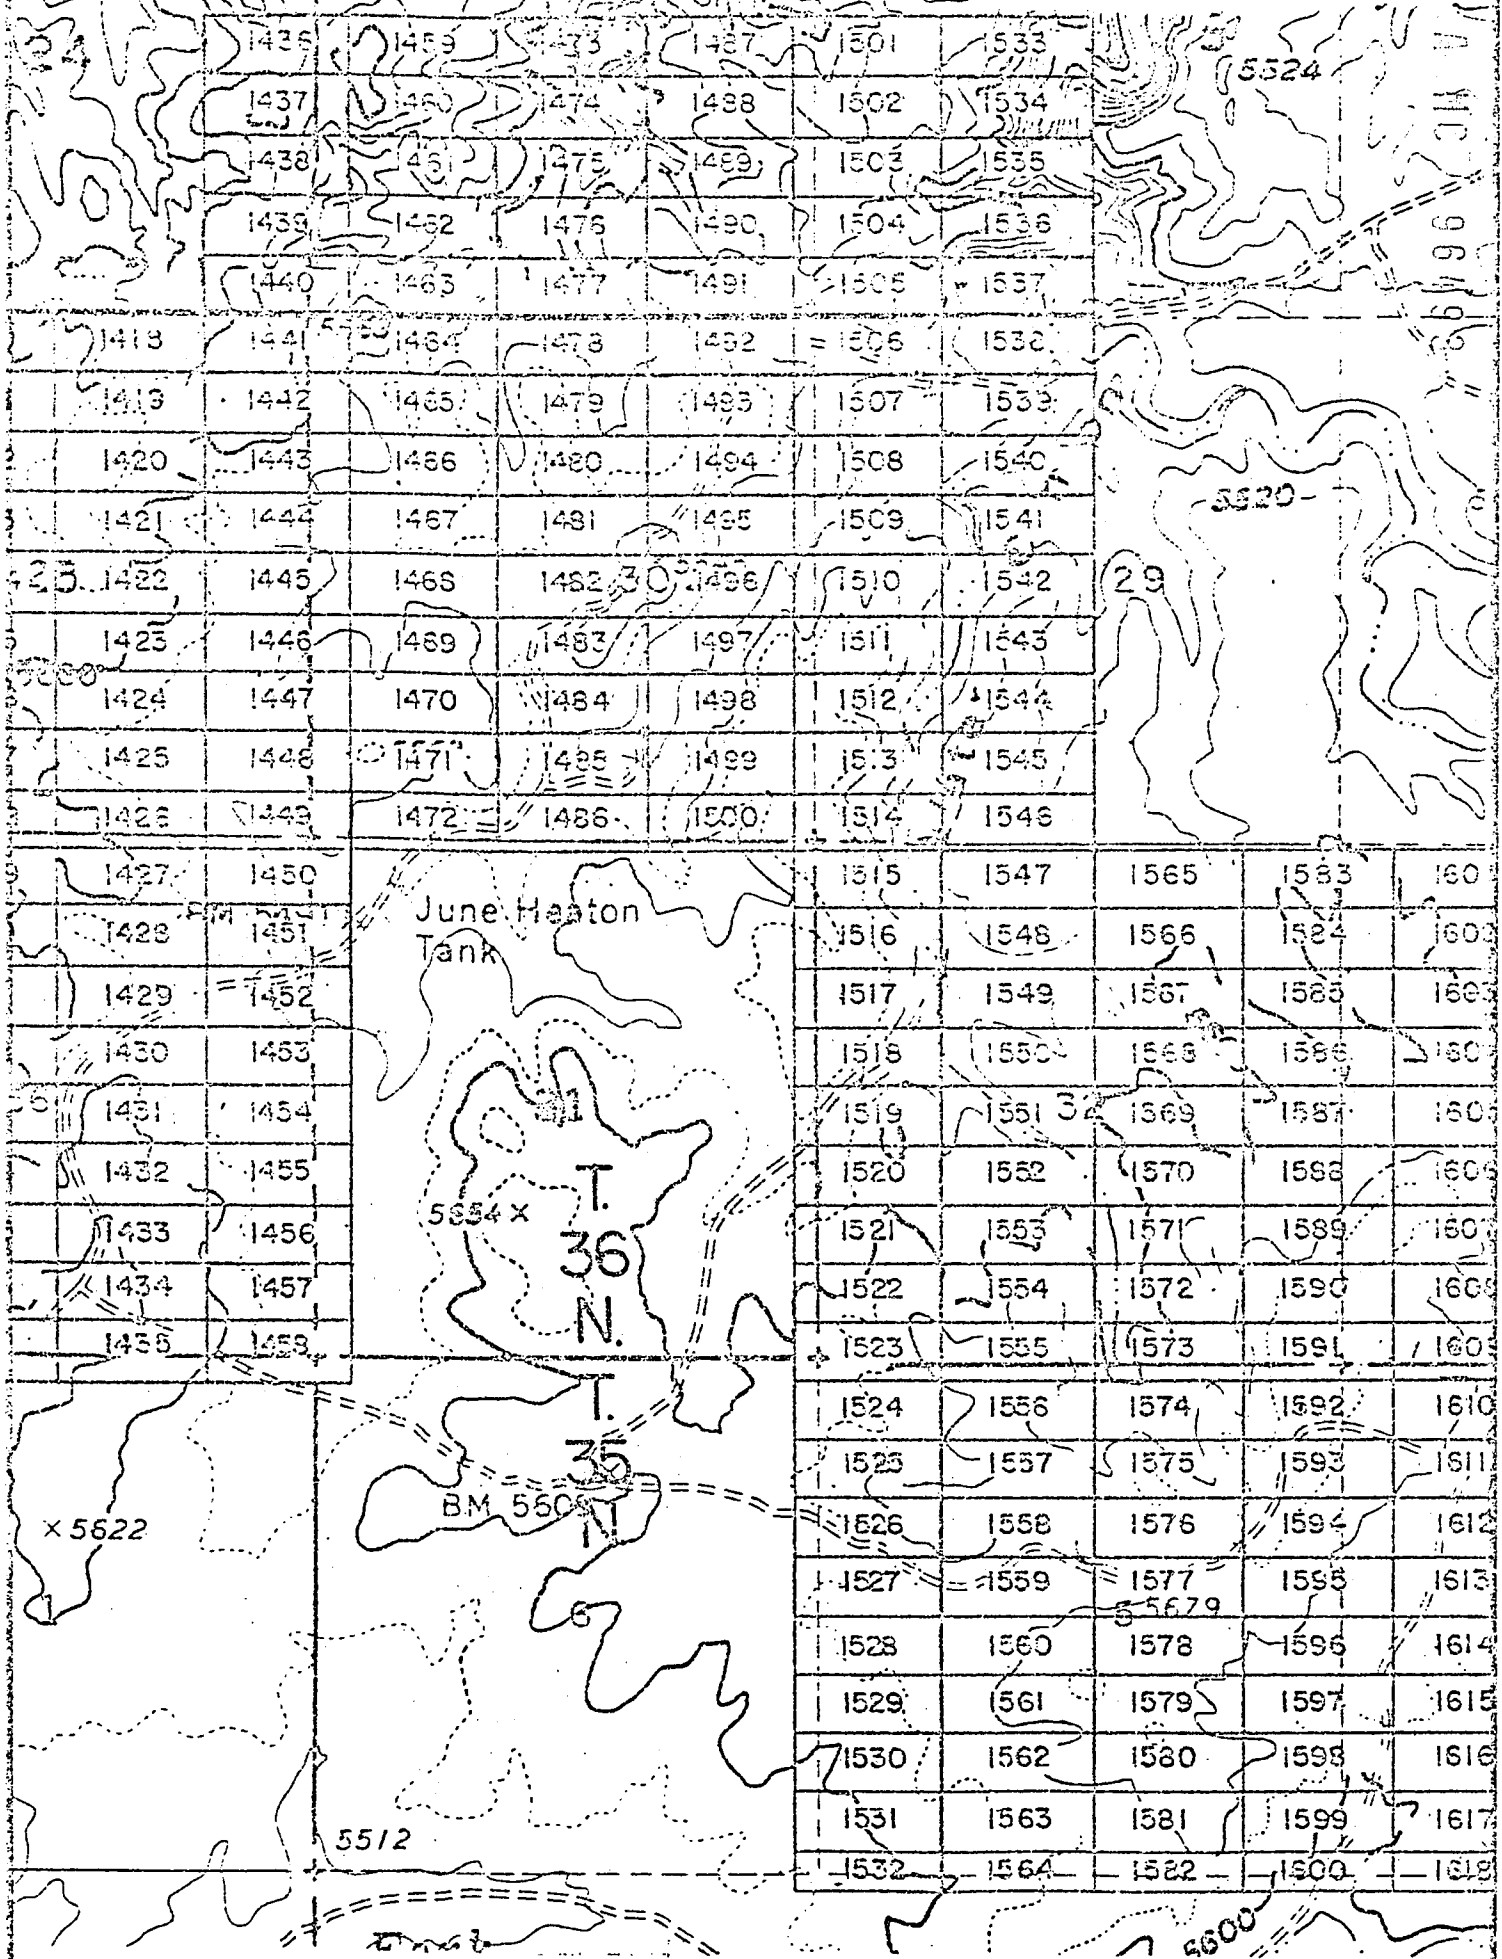 1436 1459 1473 1487 1501 1533
5524
1437 1460 1474 1488 1502 1534
1438 1461 1475 1489 1503 1535
1439 1462 1476 1490 1504 1536
1440 1463 1477 1491 1505 1537
1418 1441 1464 1478 1492 1506 1538
1419 1442 1465 1479 1493 1507 1539
1420 1443 1466 1480 1494 1508 1540
5520
1421 1444 1467 1481 1495 1509 1541
1422 1445 1468 1482 30 1496 1510 1542 29
1423 1446 1469 1483 1497 1511 1543
1424 1447 1470 1484 1498 1512 1544
1425 1448 1471 1485 1499 1513 1545
1426 1449 1472 1486 1500 1514 1546
1427 1450 1515 1547 1565 1583 160
June Heaton
Tank
1428 1451 1516 1548 1566 1584
1429 1452 1517 1549 1567 1585
1430 1453 1518 1550 1568 1586 160
1431 1454 31 1519 1551 32 1569 1587 160
1432 1455 1520 1552 1570 1588 1606
T.
5654 X
1433 1456 1521 1553 1571 1589 160
36
1434 1457 1522 1554 1572 1590 160
N.
1435 1458 1523 1555 1573 1591 160
T.
1524 1556 1574 1592 1610
35
1525 1557 1575 1593 1611
BM 560
N
X 5622 1526 1558 1576 1594 1612
1527 1559 1577 1595 1613
1 6 5 5679
1528 1560 1578 1596 1614
1529 1561 1579 1597 1615
1530 1562 1580 1598 1616
1531 1563 1581 1599 1617
5512
1532 1564 1582 1600 1618
5600